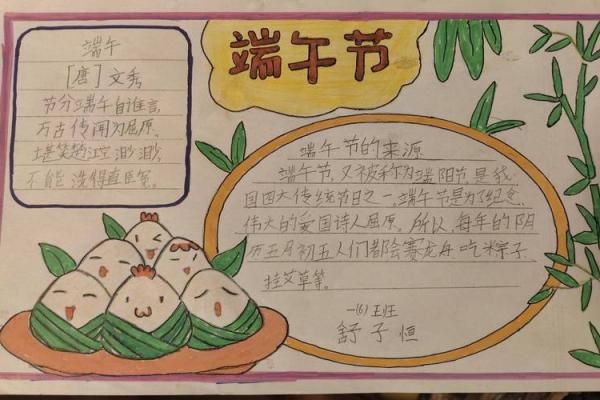 端午节
端午
[唐] 文秀
节分端午自谁言,
万古传闻为屈原。
堪笑楚江空渺渺,
不能洗得直臣冤。
端午节的来源
端午节,又被称为端阳节,是我
国四大传统节日之一,端午节是为了纪念
伟大的爱国诗人屈原。所以,每年的阴
历五月初五人们都会赛龙舟、吃粽子、
挂艾草等。
一(6)班
舒子恒